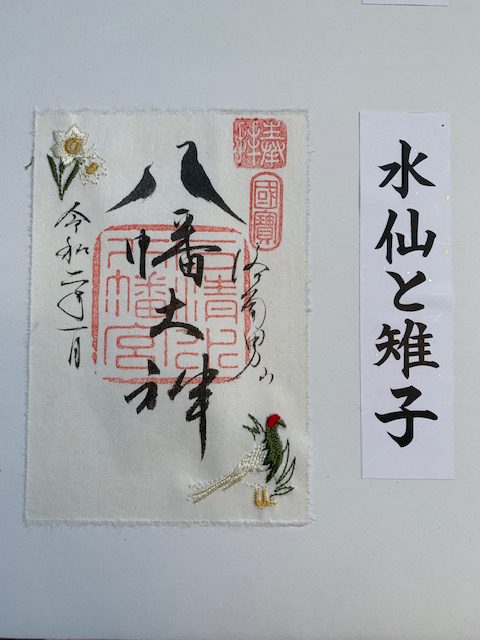 水仙と雉子
奉拝
國寶
洛南男山
八幡大神
石清水
八幡宮
令和二年一月